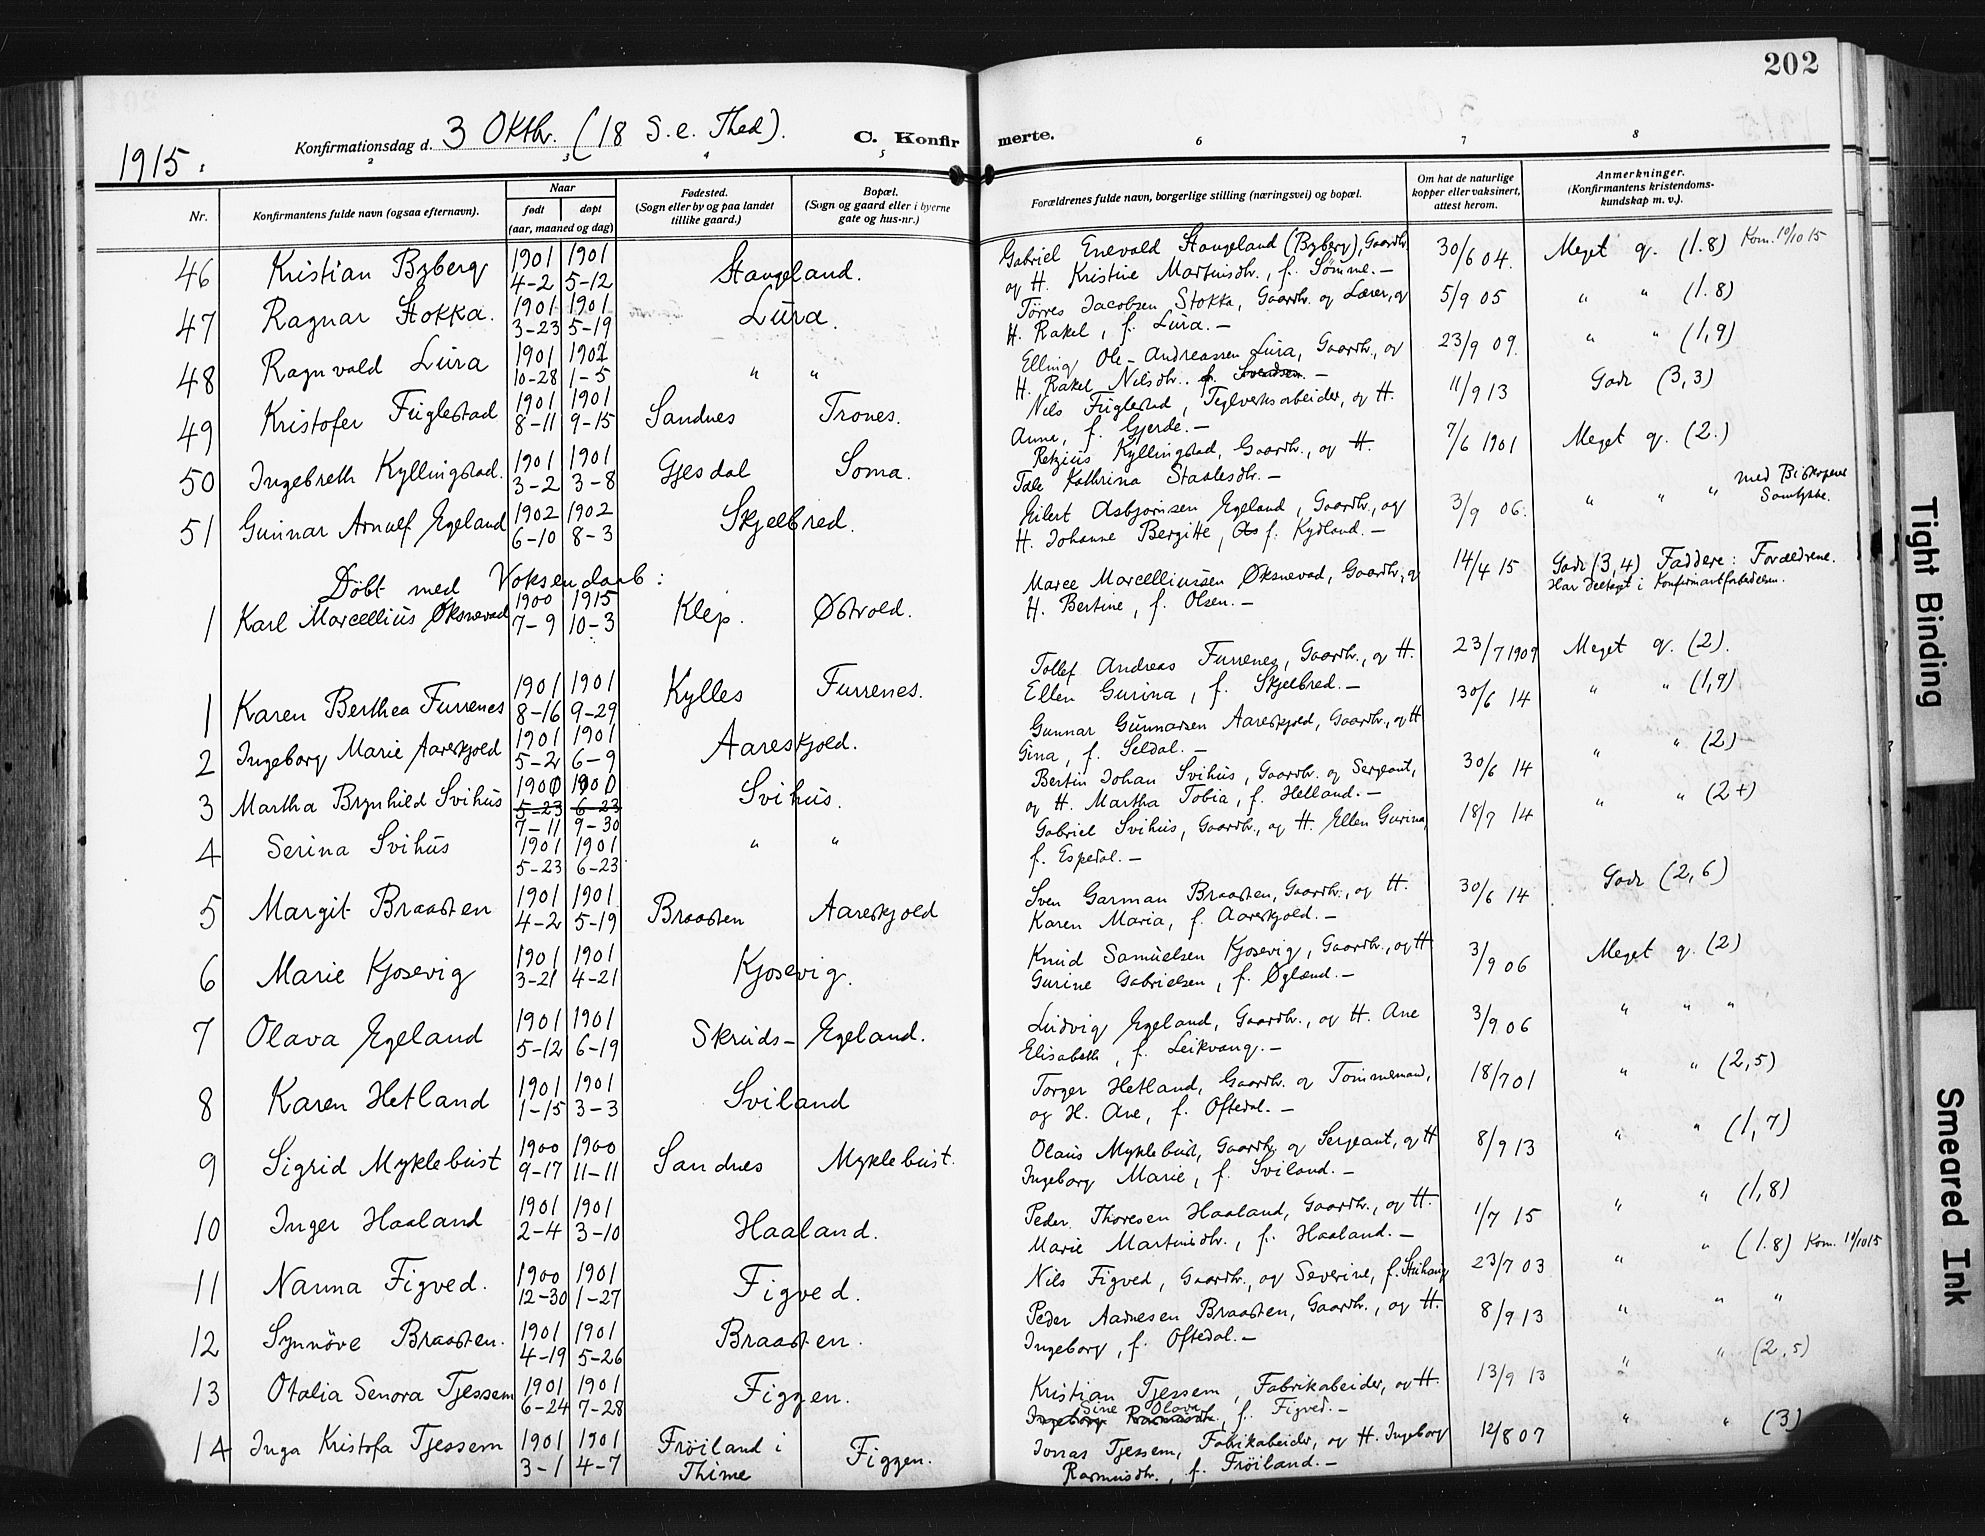 202
1915. Konfirmationsdag d. 3 Oktbr. (18 S. e. Thed). C. Konfirmerte.
2 3 4 5 6 7 8
Nr. Konfirmantens fulde navn (ogsaa efternavn). Naar født døpt (aar, maaned og dag) Fødested. (Sogn eller by og paa landet tillike gaard.) Bopæl. (Sogn og gaard eller i byerne gate og hus-nr.) Forældrenes fulde navn, borgerlige stilling (næringsvei) og bopæl. Om hat de naturlige kopper eller vaksinert, attest herom. Anmerkninger. (Konfirmantens kristendoms-kundskap m. v.).
46 Kristian Byberg 1901 4-2 1901 5-12 Stangeland. Gabriel Enevald Stangeland (Byberg), Gaardbr. 30/6 04. Meget g. (1.8) Kom. 10/10 15
og H. Kristine Martinisdtr., f. Sømme. —
47 Ragnar Stokka. 1901 3-23 1901 5-19 Lura. Tørres Jacobsen Stokka, Gaardbr. og Lærer, og 5/9 05 " " (1.8)
H. Rakel, f. Lura. —
48 Ragnvald Lura 1901 10-28 1902 1-5 " " Elling Ole-Andreassen Lura, Gaardbr., og 23/9 09. " " (1,9)
H. Rakel Nilsdtr. f. Svendsen. —
49 Kristofer Fuglestad 1901 8-11 1901 9-15 Sandnes Trones. Nils Fuglestad, Teglverksarbeider, og H. 11/9 13 Godt (3,3)
Anna, f. Gjerde. —
50 Ingebreth Kyllingstad. 1901 3-2 1901 3-8 Gjesdal Soma. Retzius Kyllingstad, Gaardbr., og H. 7/6 1901 Meget g. (2.)
Tale Kathrina Staalesdtr. —
51 Gunnar Arnulf Egeland 1902 6-10 1902 8-3 Skjelbred. Eilert Asbjørnsen Egeland, Gaardbr., og 3/9 06. " " " med Biskopens Samtykke.
H. Johanne Bergitte, As f. Kydland. —
Döbt med Voksendaab:
1 Karl Marcellius Øksnevad 1900 7-9 1915 10-3 Klep. Østvold. Marce Marcelliussen Øksnevad, Gaardbr., og 14/4 15 Godt (3,4) Faddere: Forældrene.
H. Bertine, f. Olsen. — Har deltagt i Konfirmantforbedelsen.
1 Karen Berthea Furrenes 1901 8-16 1901 9-29 Kylles Furrenes. Tollef Andreas Furrenes, Gaardbr., og H. 23/7 1909 Meget g. (2).
Ellen Gurina, f. Skjelbred. —
2 Ingeborg Marie Aareskjold 1901 5-2 1901 6-9 Aareskjold. Gunnar Gunnarsen Aareskjold, Gaardbr., og H 30/6 14 " " (1,9)
Gina, f. Seldal. —
3 Martha Brynhild Svihus 1900 5-23 7-11 1900 6-23 9-30 Svihus. Bertin Johan Svihus, Gaardbr. og Sergeant, 30/6 14 " " (2)
og H. Martha Tobia, f. Helland. —
4 Serina Svihus 1901 5-23 1901 6-23 " " Gabriel Svihus, Gaardbr., og H. Ellen Gurina, 18/7 14 " " (2+)
f. Espedal. —
5 Margit Braasten 1901 4-2 1901 5-19 Braasten Aareskjold Sven Garman Braasten, Gaardbr., og H. 30/6 14 Godt (2,6)
Karen Maria, f. Aareskjold. —
6 Marie Kjosevig 1901 3-21 1901 4-21 Kjosevig. Knud Samuelsen Kjosevig, Gaardbr., og H 3/9 06 Meget g. (2)
Gurine Gabrielsen, f. Øglænd. —
7 Olava Egeland 1901 5-12 1901 6-19 Skruds- Egeland. Ludvig Egeland, Gaardbr., og H. Ane 3/9 06 " " "
Elisabeth, f. Leikvang. —
8 Karen Hetland 1901 1-15 1901 3-3 Sviland Torger Hetland, Gaardbr. og Tømmermand, 18/7 01 " " (2,5)
og H. Ane, f. Oftedal. —
9 Sigrid Myklebust 1900 9-17 1900 11-11 Sandnes Myklebust. Olaus Myklebust, Gaardbr. og Sergeant, og H 8/9 13 " " (1,7)
Ingeborg Marie, f. Sviland. —
10 Inger Haaland 1901 2-4 1901 3-10 Haaland. Peder Thoresen Haaland, Gaardbr., og H. 1/7 15 " " (1,8)
Marie Martinsdtr., f. Haaland. —
11 Nanna Figved. 1900 12-30 1901 1-27 Figved. Nils Figved, Gaardbr., og Severine, f. 23/7 03 " " (1.8) Kom. 10/10 15
12 Synnöve Braasten. 1901 4-19 1901 5-26 Braasten. Peder Aadnesen Braasten, Gaardbr., og H. 8/9 13 " " "
Ingeborg, f. Oftedal. —
13 Otalia Senora Tjessem 1901 6-24 1901 7-28 Figgen. Kristian Tjessem, Fabrikabeider, og H. 13/9 13 " " (2,5)
Sine Olava
Ingeborg Rasmusdtr., f. Figved. —
14 Inga Kristofa Tjessem 1901 3-1 1901 4-7 Fröiland i Thime Figgen. Jonas Tjessem, Fabrikabeider, og H. Ingeborg 12/8 07 " " (3)
Rasmusdtr., f. Fröiland. —
Tight Binding
Smeared Ink